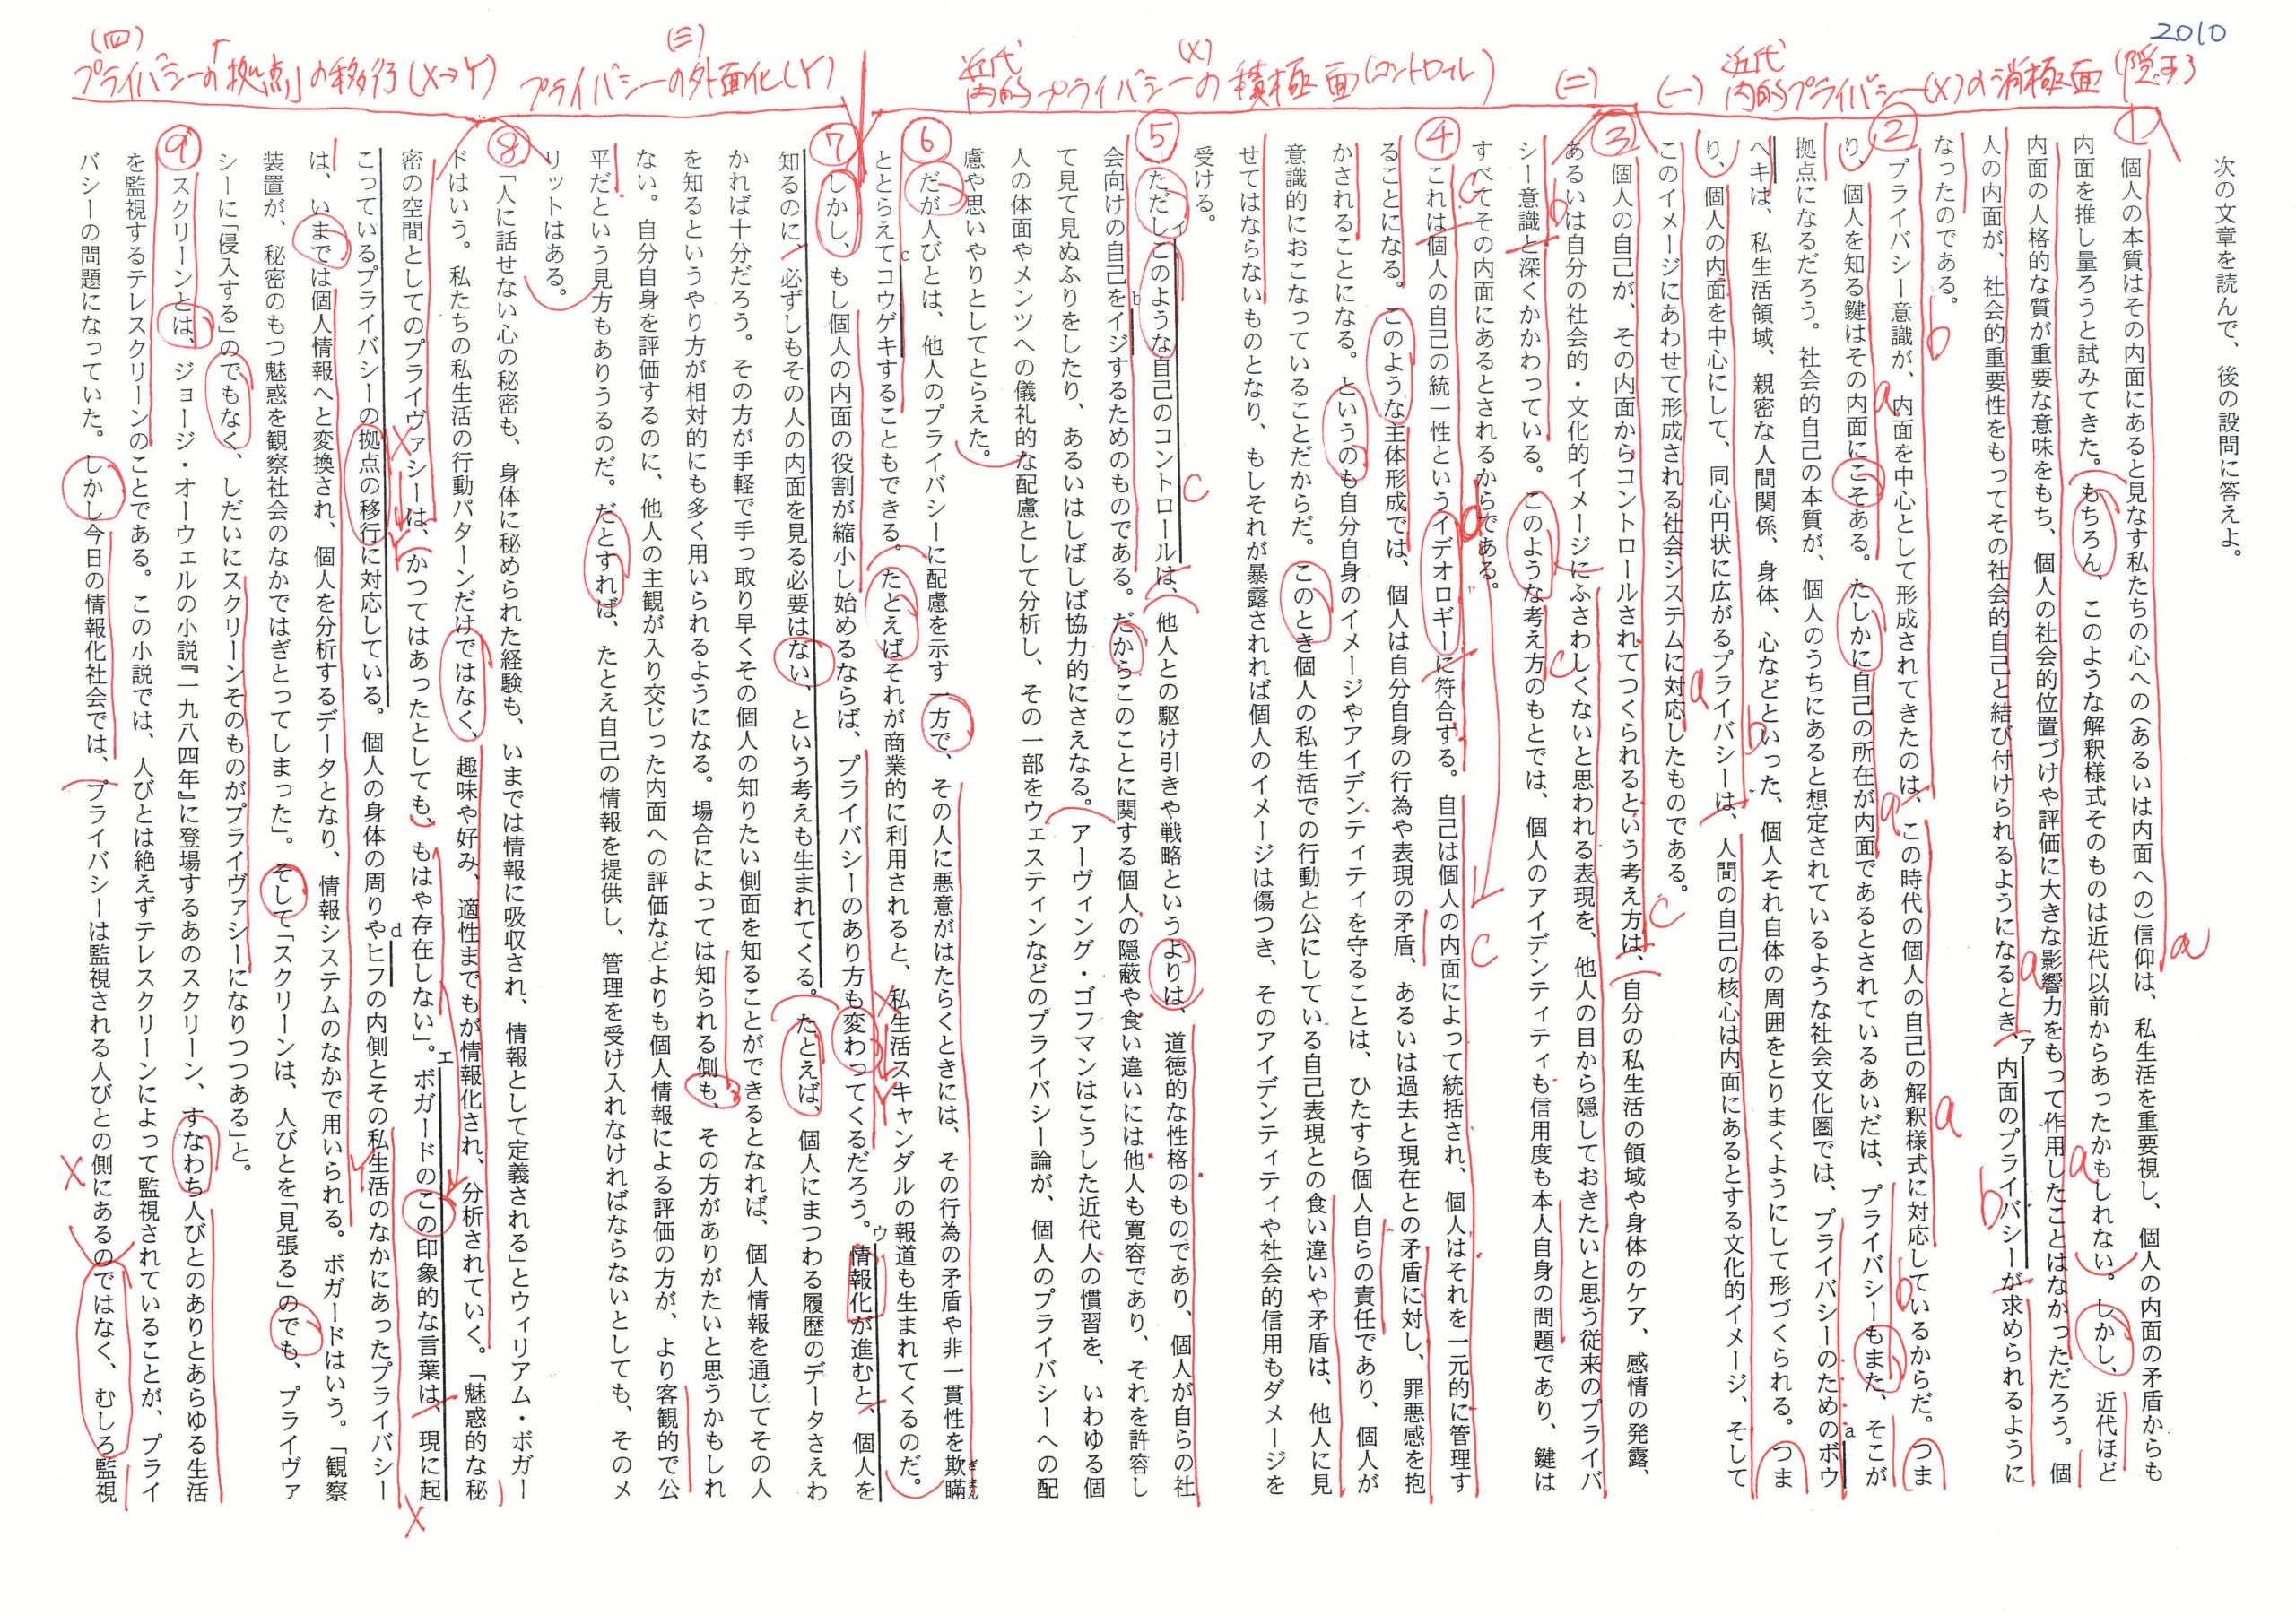 2010
(一) 近代内的プライバシー(X)の消極面(隠す)
(二) 近代内的プライバシー(X)の積極面(コントロール)
(三) プライバシーの外面化(Y)
(四) プライバシーの「拠点」の移行(X→Y)
次の文章を読んで、後の設問に答えよ。
① 個人の本質はその内面にあると見なす私たちの心への(あるいは内面への)信仰は、私生活を重要視し、個人の内面の矛盾からも
内面を推し量ろうと試みてきた。もちろん、このような解釈様式そのものは近代以前からあったかもしれない。しかし、近代ほど
内面の人格的な質が重要な意味をもち、個人の社会的位置づけや評価に大きな影響力をもって作用したことはなかっただろう。個
人の内面が、社会的重要性をもってその社会的自己と結び付けられるようになるとき、ア内面のプライバシーが求められるように
なったのである。
② プライバシー意識が、内面を中心として形成されてきたのは、この時代の個人の自己の解釈様式に対応しているからだ。つま
り、個人を知る鍵はその内面にこそある。たしかに自己の所在が内面であるとされているあいだは、プライバシーもまた、そこが
拠点になるだろう。社会的自己の本質が、個人のうちにあると想定されているような社会文化圏では、プライバシーのためのaボウ
ヘキは、私生活領域、親密な人間関係、身体、心などといった、個人それ自体の周囲をとりまくようにして形づくられる。つま
り、個人の内面を中心にして、同心円状に広がるプライバシーは、人間の自己の核心は内面にあるとする文化的イメージ、そして
このイメージにあわせて形成される社会システムに対応したものである。
③ 個人の自己が、その内面からコントロールされてつくられるという考え方は、自分の私生活の領域や身体のケア、感情の発露、
あるいは自分の社会的・文化的イメージにふさわしくないと思われる表現を、他人の目から隠しておきたいと思う従来のプライバ
シー意識と深くかかわっている。このような考え方のもとでは、個人のアイデンティティも信用度も本人自身の問題であり、鍵は
すべてその内面にあるとされるからである。
④ これは個人の自己の統一性というイデオロギーに符合する。自己は個人の内面によって統括され、個人はそれを一元的に管理す
ることになる。このような主体形成では、個人は自分自身の行為や表現の矛盾、あるいは過去と現在との矛盾に対し、罪悪感を抱
かされることになる。というのも自分自身のイメージやアイデンティティを守ることは、ひたすら個人自らの責任であり、個人が
意識的におこなっていることだからだ。このとき個人の私生活での行動と公にしている自己表現との食い違いや矛盾は、他人に見
せてはならないものとなり、もしそれが暴露されれば個人のイメージは傷つき、そのアイデンティティや社会的信用もダメージを
受ける。
⑤ ただしイこのような自己のコントロールは、他人との駆け引きや戦略というよりは、道徳的な性格のものであり、個人が自らの社
会向けの自己をbイジするためのものである。だからこのことに関する個人の隠蔽や食い違いには他人も寛容であり、それを許容し
て見て見ぬふりをしたり、あるいはしばしば協力的にさえなる。アーヴィング・ゴフマンはこうした近代人の慣習を、いわゆる個
人の体面やメンツへの儀礼的な配慮として分析し、その一部をウェスティンなどのプライバシー論が、個人のプライバシーへの配
慮や思いやりとしてとらえた。
⑥ だが人びとは、他人のプライバシーに配慮を示す一方で、その人に悪意がはたらくときには、その行為の矛盾や非一貫性を欺瞞(ぎまん)
ととらえてcコウゲキすることもできる。たとえばそれが商業的に利用されると、私生活スキャンダルの報道も生まれてくるのだ。
⑦ しかし、もし個人の内面の役割が縮小し始めるならば、プライバシーのあり方も変わってくるだろう。ウ情報化が進むと、個人を
知るのに、必ずしもその人の内面を見る必要はない、という考えも生まれてくる。たとえば、個人にまつわる履歴のデータさえわ
かれば十分だろう。その方が手軽で手っ取り早くその個人の知りたい側面を知ることができるとなれば、個人情報を通じてその人
を知るというやり方が相対的にも多く用いられるようになる。場合によっては知られる側も、その方がありがたいと思うかもしれ
ない。自分自身を評価するのに、他人の主観が入り交じった内面への評価などよりも個人情報による評価の方が、より客観的で公
平だという見方もありうるのだ。だとすれば、たとえ自己の情報を提供し、管理を受け入れなければならないとしても、そのメ
リットはある。
⑧ 「人に話せない心の秘密も、身体に秘められた経験も、いまでは情報に吸収され、情報として定義される」とウィリアム・ボガー
ドはいう。私たちの私生活の行動パターンだけではなく、趣味や好み、適性までもが情報化され、分析されていく。「魅惑的な秘
密の空間としてのプライヴァシーは、かつてはあったとしても、もはや存在しない」。エボガードのこの印象的な言葉は、現に起
こっているプライバシーの拠点の移行に対応している。個人の身体の周りやdヒフの内側とその私生活のなかにあったプライバシー
は、いまでは個人情報へと変換され、個人を分析するデータとなり、情報システムのなかで用いられる。ボガードはいう。「観察
装置が、秘密のもつ魅惑を観察社会のなかではぎとってしまった」。そして「スクリーンは、人びとを「見張る」のでも、プライヴァ
シーに「侵入する」のでもなく、しだいにスクリーンそのものがプライヴァシーになりつつある」と。
⑨ スクリーンとは、ジョージ・オーウェルの小説『一九八四年』に登場するあのスクリーン、すなわち人びとのありとあらゆる生活
を監視するテレスクリーンのことである。この小説では、人びとは絶えずテレスクリーンによって監視されていることが、プライ
バシーの問題になっていた。しかし今日の情報化社会では、プライバシーは監視される人びとの側にあるのではなく、むしろ監視